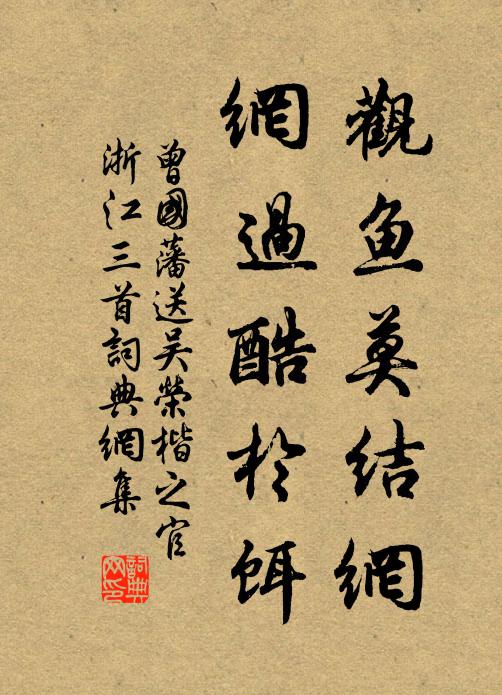 觀鱼莫结網
網過酷於餌
曾國藩送吴榮楷之官
浙江三首詞典網集
詞典网印